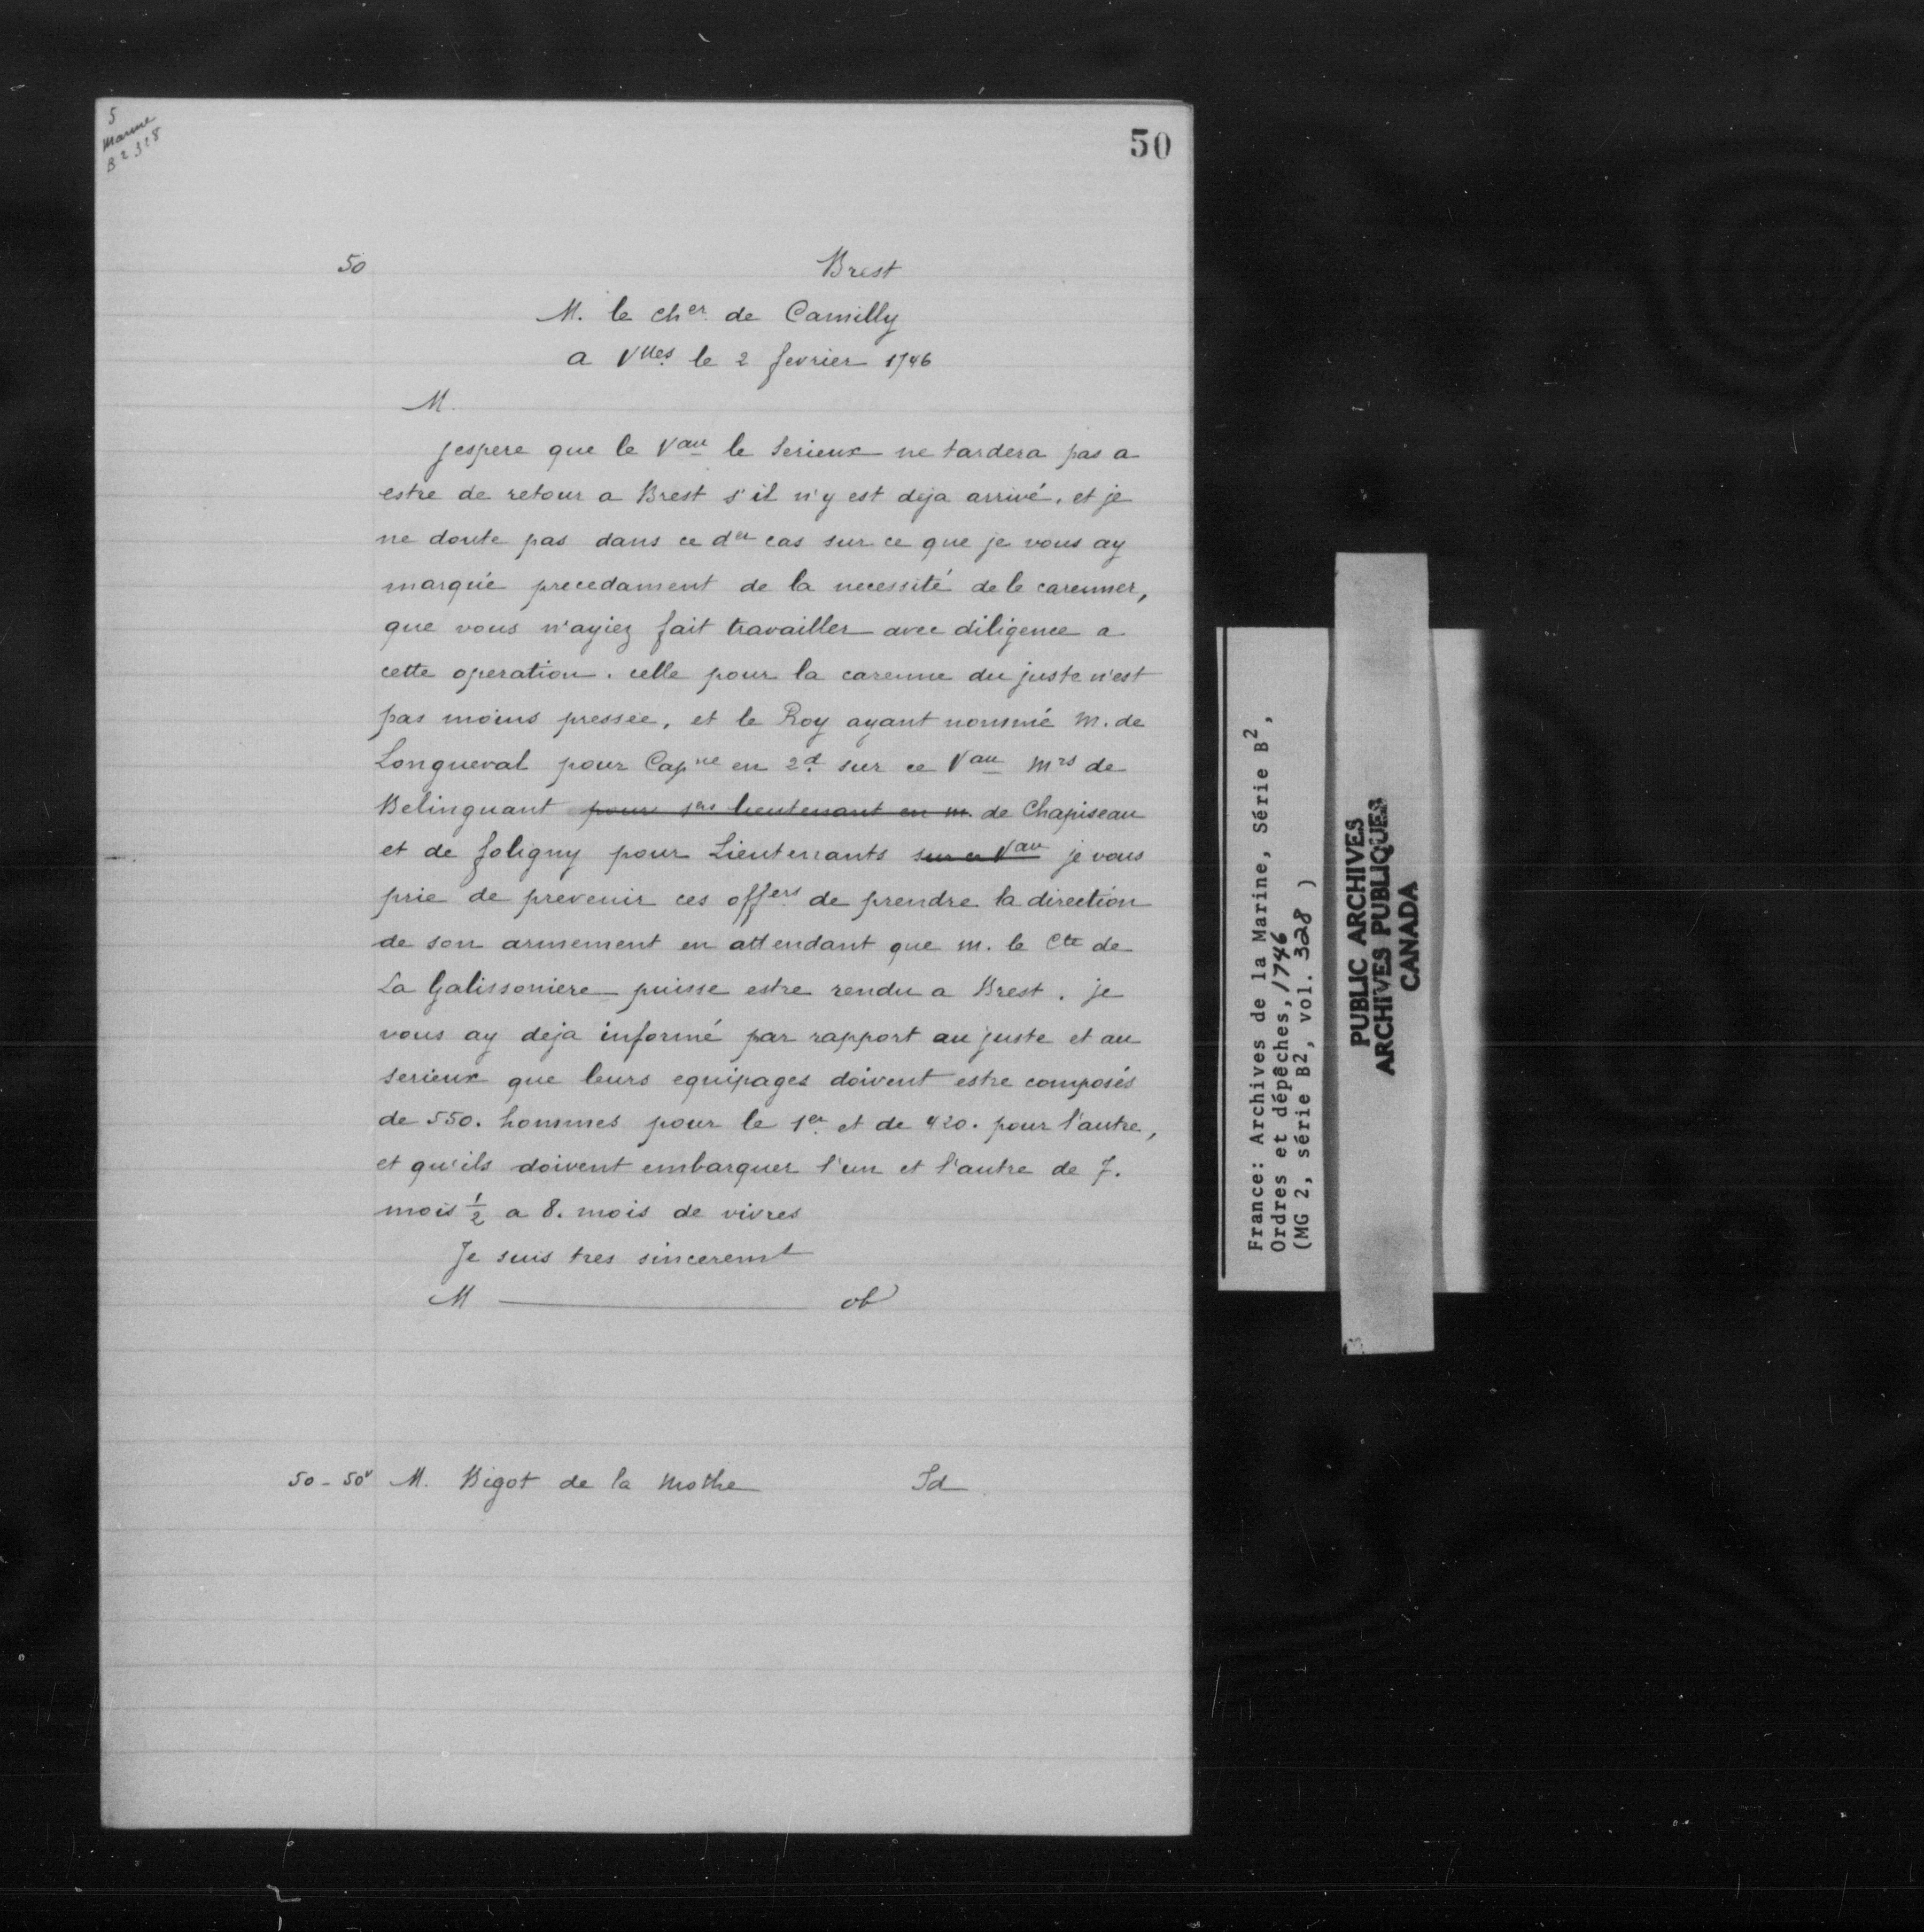 5
Marine
B2 318
50
50
Brest
M. le cher de Camilly
a Vlles le 2 fevrier 1746
M.
Jespere que le Vau le Serieux ne tardera pas a
estre de retour a Brest s'il n'y est deja arrivé, et je
ne doute pas dans ce der cas sur ce que je vous ay
marqué precedament de la necessité de le carenner,
que vous n'ayiez fait travailler avec diligence a
cette operation. celle pour la carenne du juste n'est
pas moins pressée, et le Roy ayant nommé M. de
Longueval pour Capne en 2d sur ce Vau Mrs de
Belinguant pour 1ers lieutenant en m. de Chapiseau
et de foligny pour Lieutenants sur ce Vau je vous
prie de prevenir ces offers de prendre la direction
de son armement en attendant que m. le Cte de
La Galissoniere puisse estre rendu a Brest. je
vous ay deja informé par rapport au juste et au
serieux que leurs equipages doivent estre composés
de 550. hommes pour le 1er et de 420. pour l'autre,
et qu'ils doivent embarquer l'un et l'autre de 7.
mois 1/2 a 8. mois de vivres
Je suis tres sinceremt
M ob
50 - 50v M. Bigot de la Mothe Id
France: Archives de la Marine, Série B2,
Ordres et dépêches, 1746
(MG 2, série B2, vol. 328 )
PUBLIC ARCHIVES
ARCHIVES PUBLIQUES
CANADA